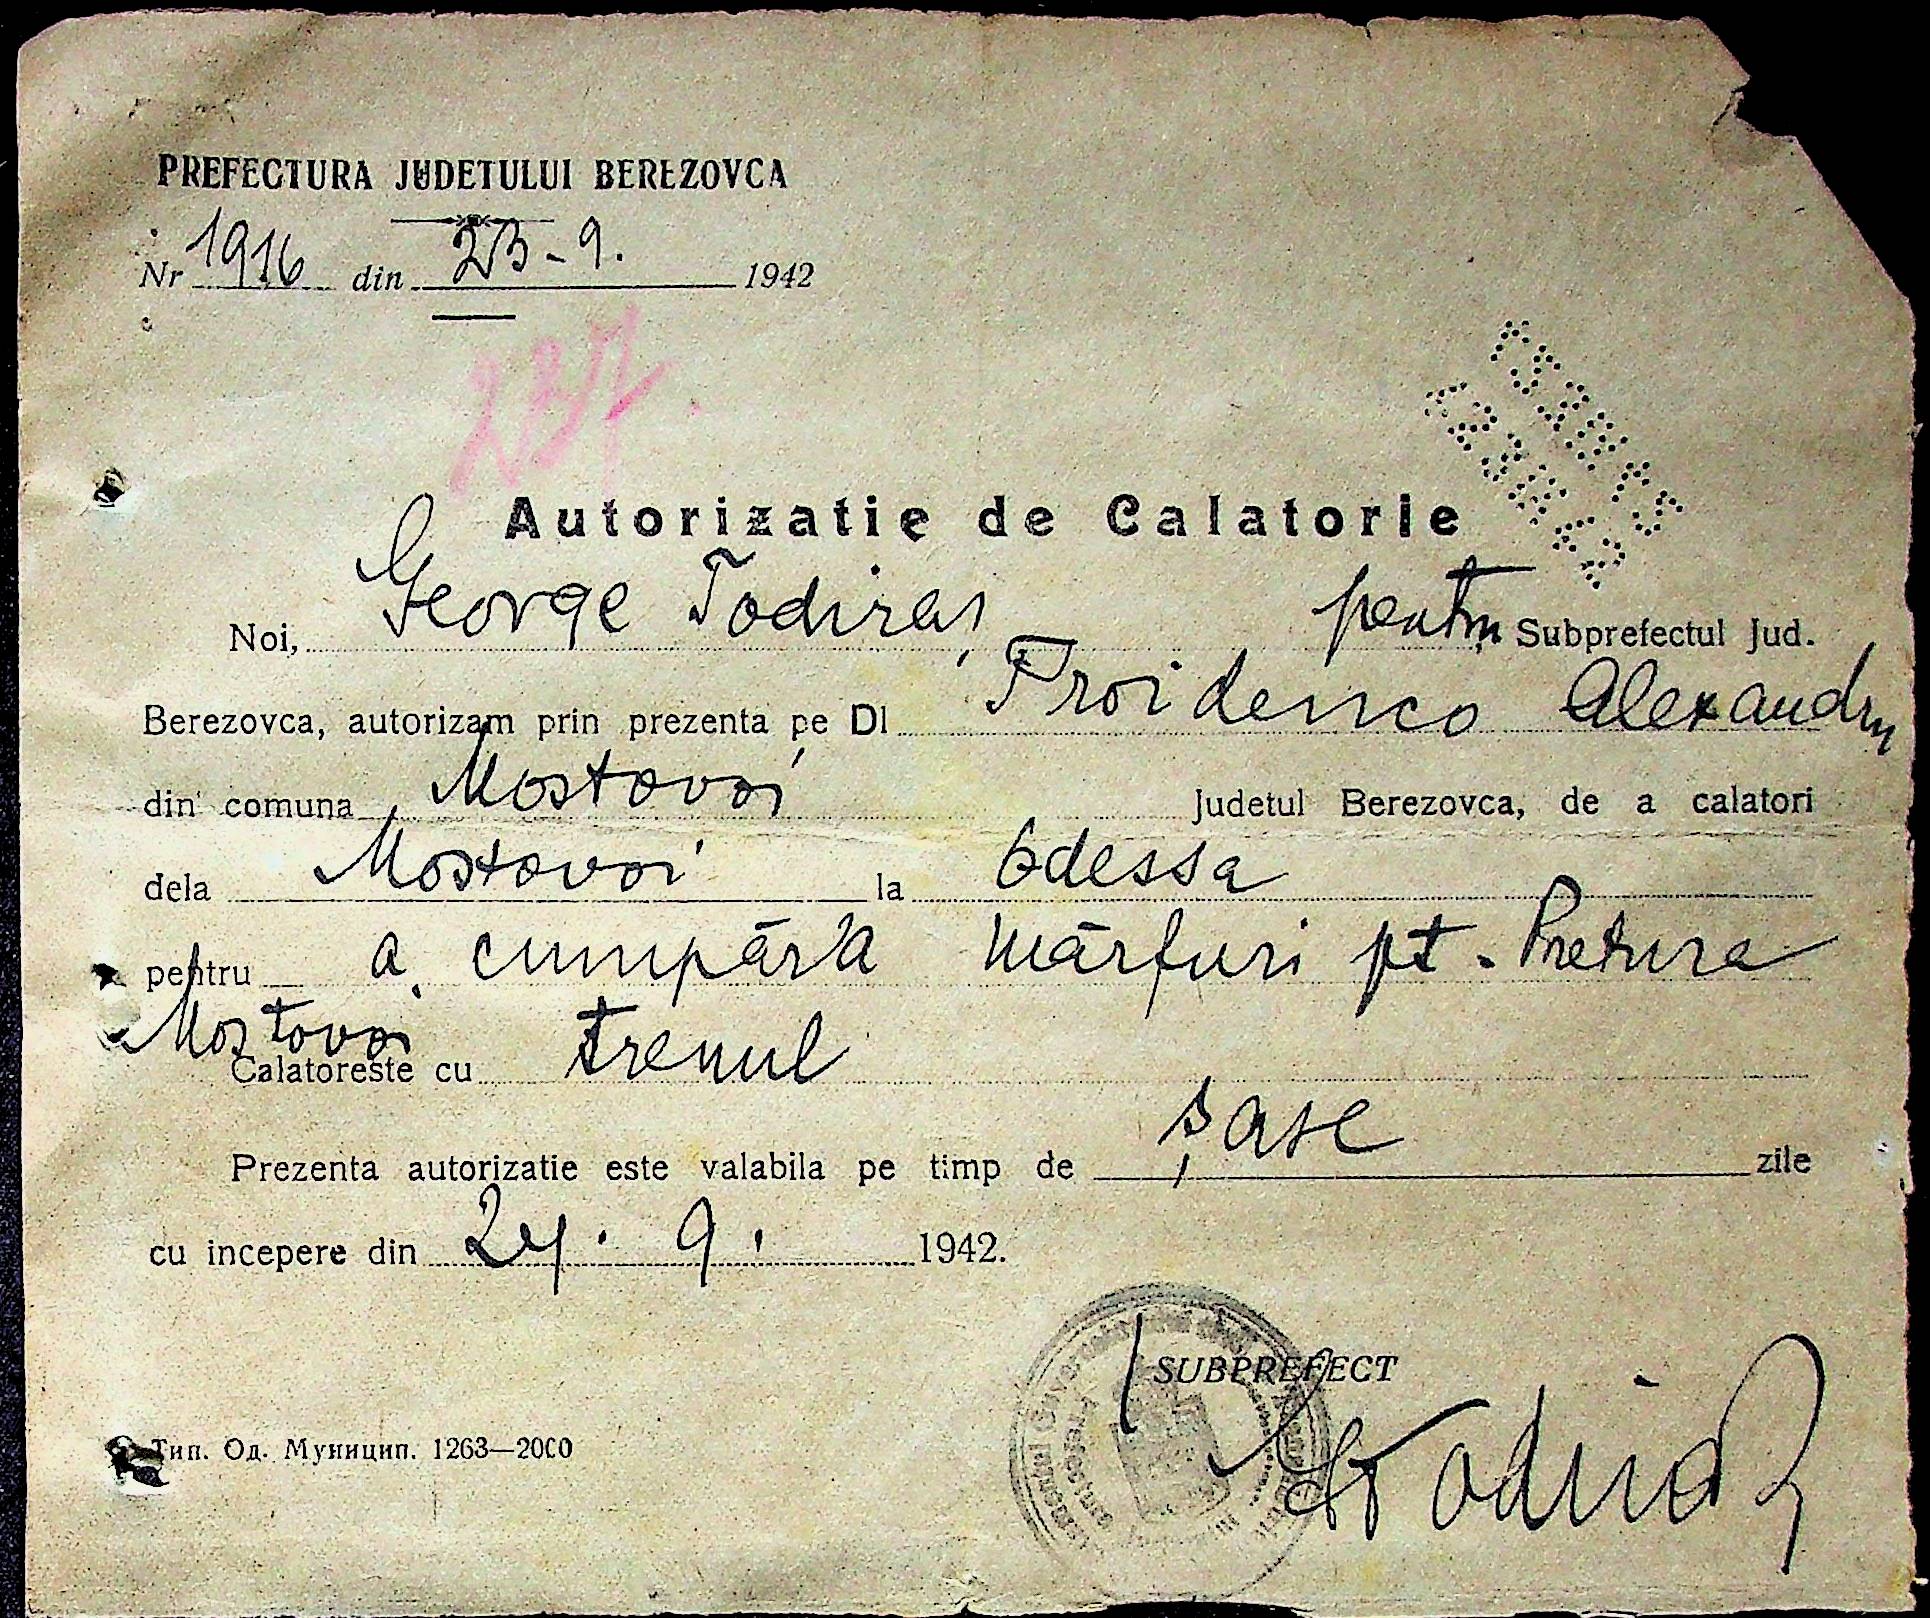 PREFECTURA JUDETULUI BEREZOVCA
Nr 1916 din 23-9. 1942
237.
Autorizatie de Calatorie
Noi, George Todiraș pentru Subprefectul Jud.
Berezovca, autorizam prin prezenta pe Dl Troidenco Alexandru
din comuna Mostovoi Judetul Berezovca, de a calatori
dela Mostovoi la Odessa
pentru a cumpăra mărfuri pt. Pretura
Mostovoi
Calatoreste cu trenul
Prezenta autorizatie este valabila pe timp de șase zile
cu incepere din 24. 9. 1942.
SUBPREFECT
Тип. Од. Муницип. 1263—2000